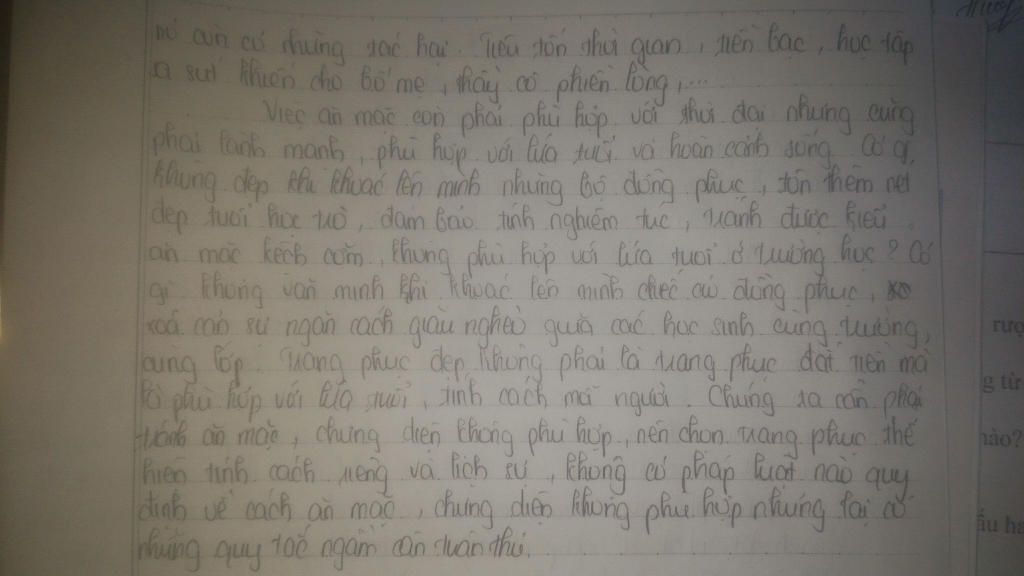 nó còn có những tác hại. Tiêu tốn thời gian, tiền bạc, học tập
sa sút khiến cho bố mẹ, thầy cô phiền lòng,...
Việc ăn mặc còn phải phù hợp với thời đại nhưng cũng
phải lành mạnh, phù hợp với lứa tuổi và hoàn cảnh sống. Có gì
không đẹp khi khoác lên mình những bộ đồng phục, tôn thêm nét
đẹp tuổi học trò, đảm bảo tính nghiêm túc, tránh được kiểu
ăn mặc kệch cỡm, không phù hợp với lứa tuổi ở trường học? Có
gì không văn minh khi khoác lên mình chiếc áo đồng phục,
xoá căn sự ngăn cách giàu nghèo giữa các học sinh cùng trường,
cùng lớp. Trang phục đẹp không phải là trang phục đắt tiền mà
là phù hợp với lứa tuổi, tính cách mỗi người. Chúng ta cần phải
tránh ăn mặc, chưng diện không phù hợp, nên chọn trang phục thể
hiện tính cách riêng và lịch sự, không có pháp luật nào quy
định về cách ăn mặc, chưng diện không phù hợp nhưng lại có
những quy tắc ngầm cần tuân thủ.
rượ
g từ
nào?
ấu ha